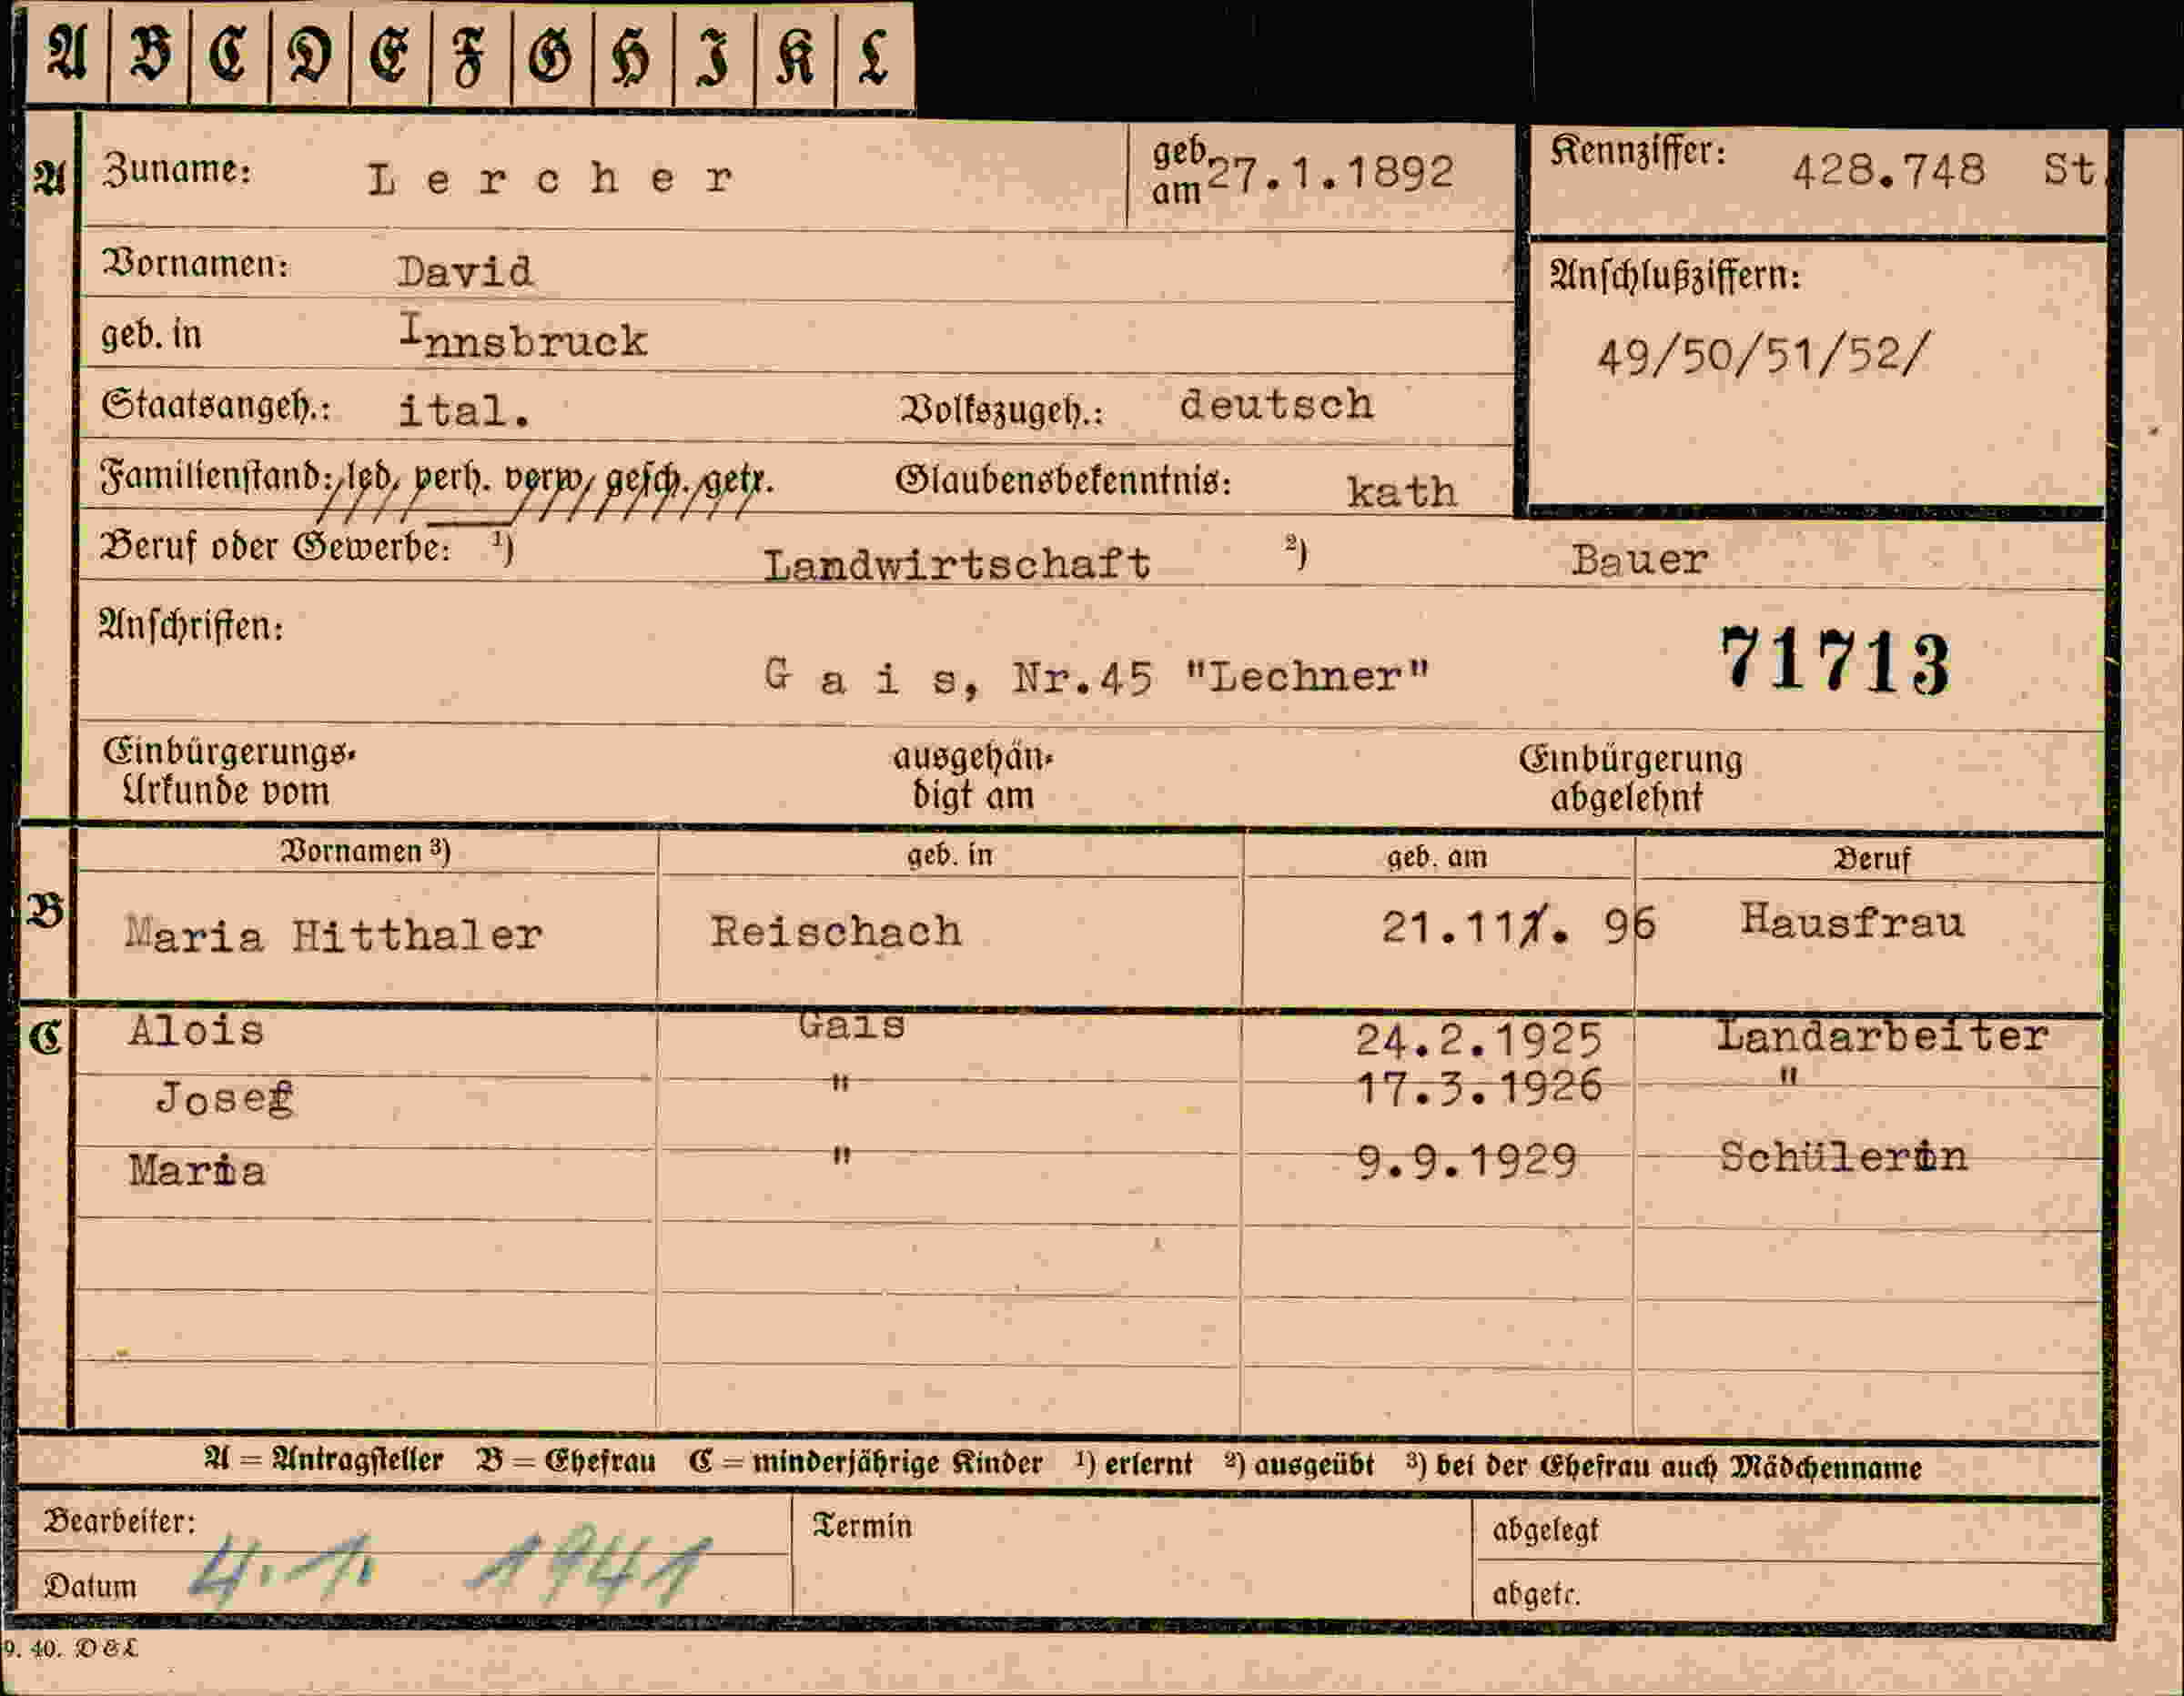 A B C D E F G H I K L
A Zuname: Lercher geb. am 27.1.1892 Kennziffer: 428.748 St.
Vornamen: David
Anschlußziffern:
geb. in Innsbruck
49/50/51/52/
Staatsangeh.: ital. Volkszugeh.: deutsch
Familienstand: led, verh. verw, gesch. getr. Glaubensbekenntnis: kath
Beruf oder Gewerbe: 1) Landwirtschaft 2) Bauer
Anschriften:
Gais, Nr.45 "Lechner" 71713
Einbürgerungs- ausgehän- Einbürgerung
Urkunde vom digt am abgelehnt
Vornamen 3) geb. in geb. am Beruf
B Maria Hitthaler Reischach 21.11. 96 Hausfrau
C Alois Gais 24.2.1925 Landarbeiter
Josef " 17.3.1926 "
Maria " 9.9.1929 Schülerin
A = Antragsteller B = Ehefrau C = minderjährige Kinder 1) erlernt 2) ausgeübt 3) bei der Ehefrau auch Mädchenname
Bearbeiter: Termin abgelegt
Datum 4.1. 1941 abgetr.
9. 40. D & L